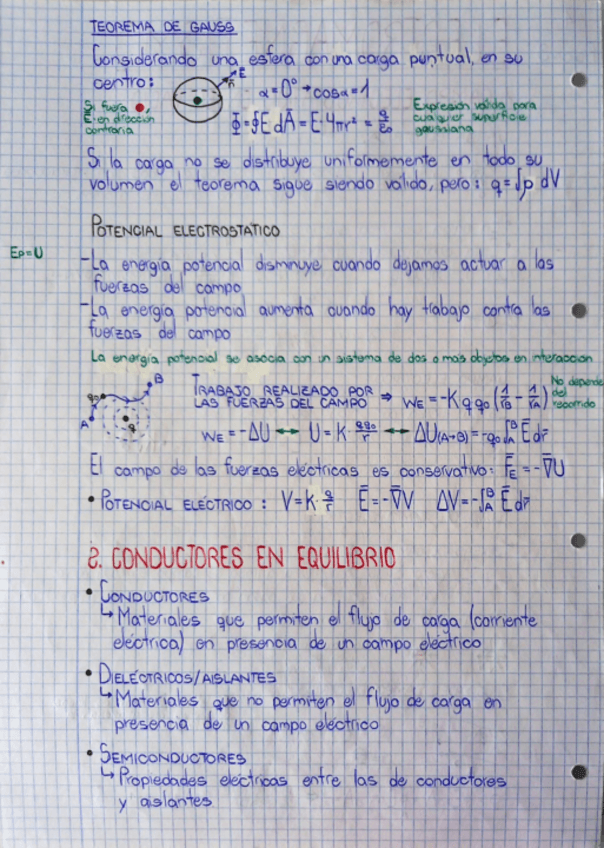 TEOREMA DE GAUSS
Considerando una esfera con una carga puntual, en su
centro:
Si fuera
Ē en dirección
contraria
Ē
n̄
α=0° → cosα=1
Φ̄=∮Ē dĀ=E·4πr²= q/ε₀
Expresión válida para
cualquier superficie
gaussiana
Si la carga no se distribuye uniformemente en todo su
volumen el teorema sigue siendo válido, pero: q=∫ρ dV
POTENCIAL ELECTROSTÁTICO
Ep=U
-La energía potencial disminuye cuando dejamos actuar a las
fuerzas del campo
-La energía potencial aumenta cuando hay trabajo contra las
fuerzas del campo
La energía potencial se asocia con un sistema de dos o más objetos en interacción
q₀
B
A
q
TRABAJO REALIZADO POR
LAS FUERZAS DEL CAMPO ⇒ WE=-K q q₀ (1/rB - 1/rA)
No depende
del
recorrido
WE=-ΔU ↔ U=K· qq₀/r ↔ ΔU(A→B)=-q₀∫ᴮ_A Ē dr̄
El campo de las fuerzas eléctricas es conservativo: F̄E=-∇̄U
• POTENCIAL ELÉCTRICO: V=K· q/r Ē=-∇̄V ΔV=-∫ᴮ_A Ē dr̄
2. CONDUCTORES EN EQUILIBRIO
• CONDUCTORES
↳ Materiales que permiten el flujo de carga (corriente
eléctrica) en presencia de un campo eléctrico
• DIELÉCTRICOS/AISLANTES
↳ Materiales que no permiten el flujo de carga en
presencia de un campo eléctrico
• SEMICONDUCTORES
↳ Propiedades eléctricas entre las de conductores
y aislantes